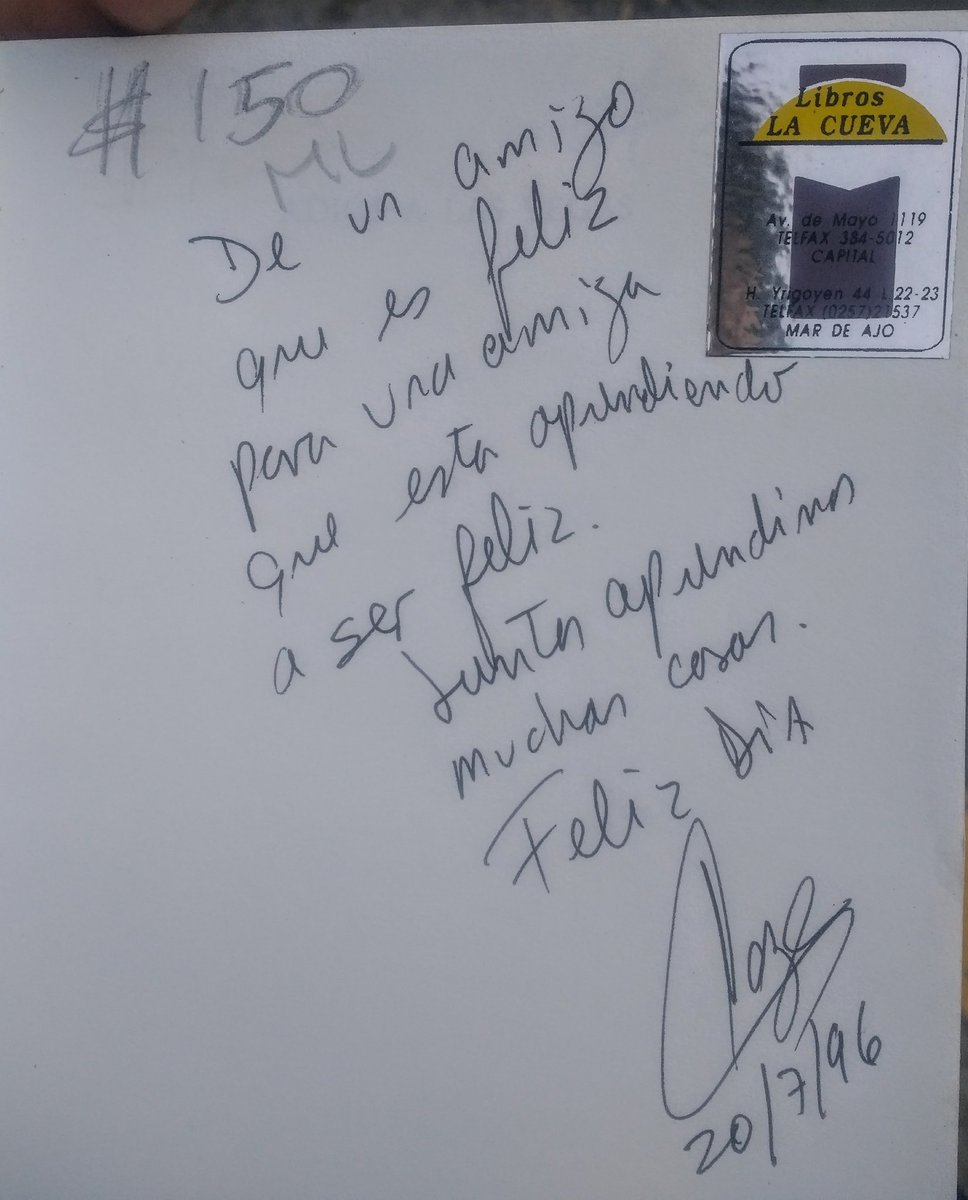 #150
ML
Libros
LA CUEVA
Av. de Mayo 1119
TELFAX 384-5012
CAPITAL
H. Yrigoyen 44 L.22-23
TELFAX (0257)21537
MAR DE AJO
De un amigo
que es feliz
para una amiga
que esta aprendiendo
a ser feliz.
Juntos aprendimos
muchas cosas.
Feliz DíA
20/7/96